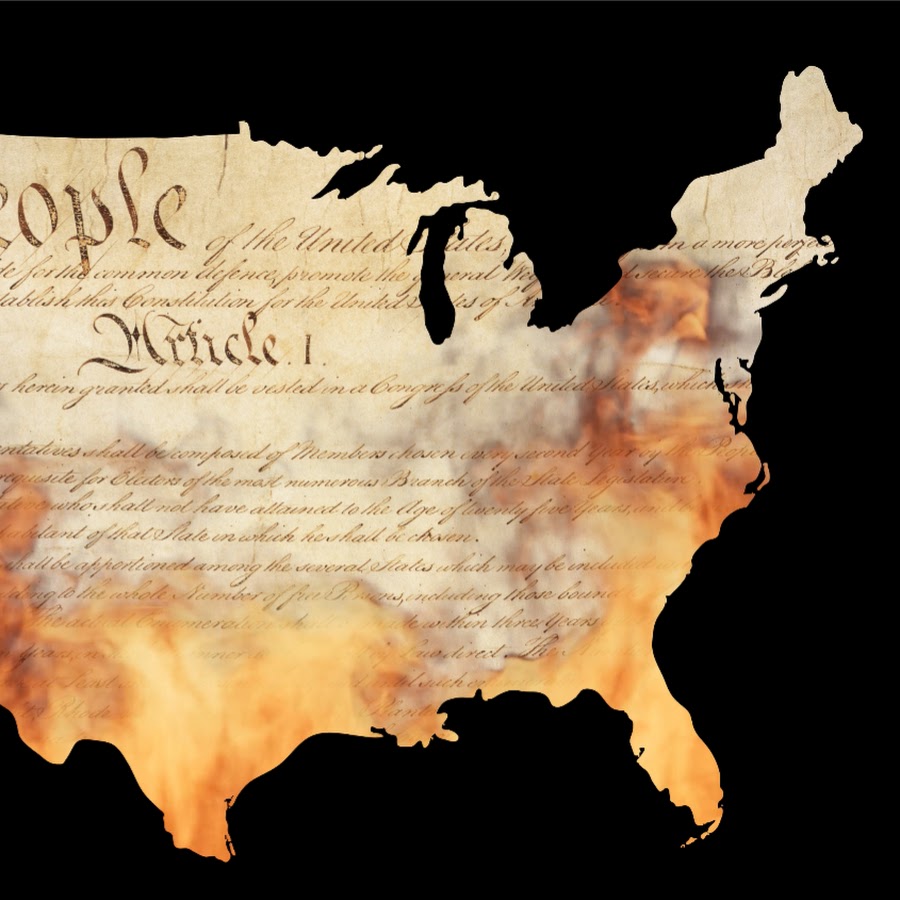 eople
of the United States, in a more perfe
te for the common defence, promote the general Wel secure the Ble
tablish this Constitution for the United States of A
Article. I.
s herein granted shall be vested in a Congress of the United States, which sh
entatives shall be composed of Members chosen every second Year by the Peop
requisite for Electors of the most numerous Branch of the State Legislature.
who shall not have attained to the Age of twenty five Years, and
abitant of that State in which he shall be chosen.
shall be apportioned among the several States which may be included
ding to the whole Number of free Persons, including those bound
The actual Enumeration shall made within three Years
Years, in Law direct. The
at Least such
Rhode